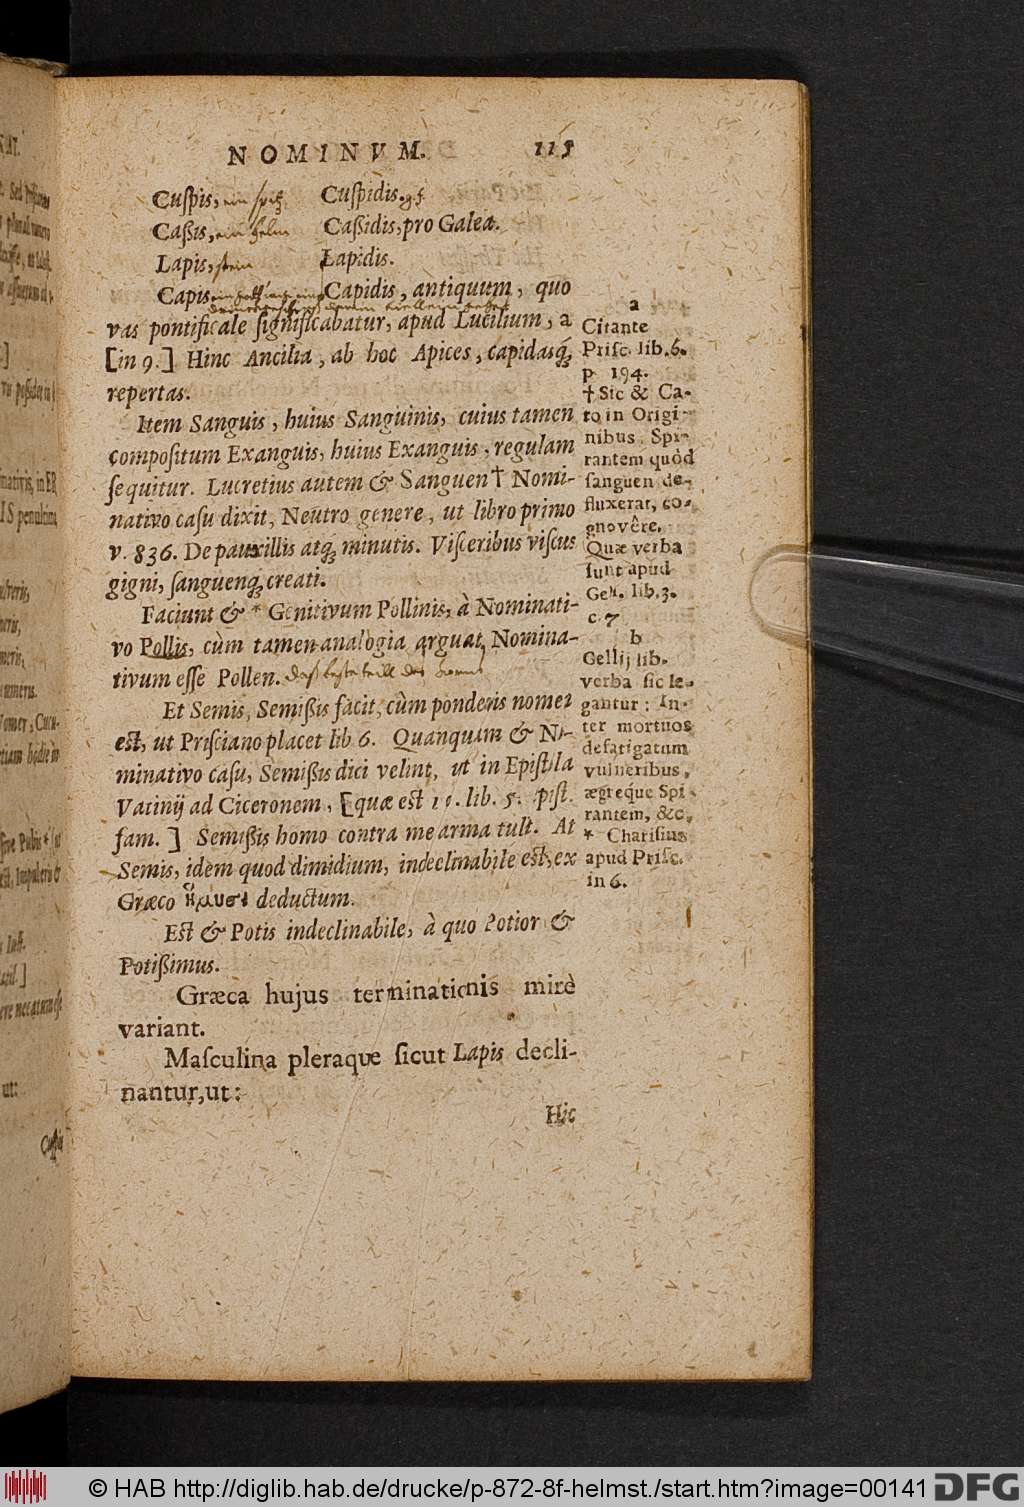 NOMINVM. 115
Cuſpis, ein ſpitz Cuſpidis.
Caßis, ein helm Caßidis, pro Galea.
Lapis, ſtein Lapidis.
Capis Capidis, antiquum, quo
vas pontificale ſignificabatur, apud Lucilium, a
[in 9.] Hinc Ancilia, ab hoc Apices, capidasq́;
repertas.
Item Sanguis, huius Sanguinis, cuius tamen
compoſitum Exanguis, huius Exanguis, regulam
ſequitur. Lucretius autem & Sanguen † Nomi-
nativo caſu dixit, Neutro genere, ut libro primo
v. 836. De pauxillis atq́; minutis. Viſceribus viſcus
gigni, ſanguenq́; creati.
Faciunt & * Genitivum Pollinis, à Nominati-
vo Pollis, cùm tamen analogia arguat, Nomina-
tivum eſſe Pollen.
Et Semis, Semißis facit, cùm ponderis nomen
est, ut Priſciano placet lib 6. Quanquam & No-
minativo caſu, Semißis dici velint, ut in Epiſtola
Vatinij ad Ciceronem, [quæ eſt 11. lib. 5. Epiſt.
fam.] Semißis homo contra me arma tulit. At
Semis, idem quod dimidium, indeclinabile eſt, ex
Græco ἥμυσι deductum.
Eſt & Potis indeclinabile, à quo Potior &
Potißimus.
Græca hujus terminationis mirè
variant.
Maſculina pleraque ſicut Lapis decli-
nantur, ut:
Hic
a
Citante
Priſc. lib. 6.
p 194.
† Sic & Ca-
to in Origi-
nibus. Spi-
rantem quòd
ſanguen de-
fluxerat, co-
gnovêre.
Quæ verba
ſunt apud
Gell. lib. 3.
c 7
b
Gellij lib.
verba ſic le-
gantur: In-
ter mortuos
defatigatum
vulneribus,
ægreque Spi
rantem, &c.
* Chariſius
apud Priſc.
in 6.
© HAB http://diglib.hab.de/drucke/p-872-8f-helmst./start.htm?image=00141 DFG